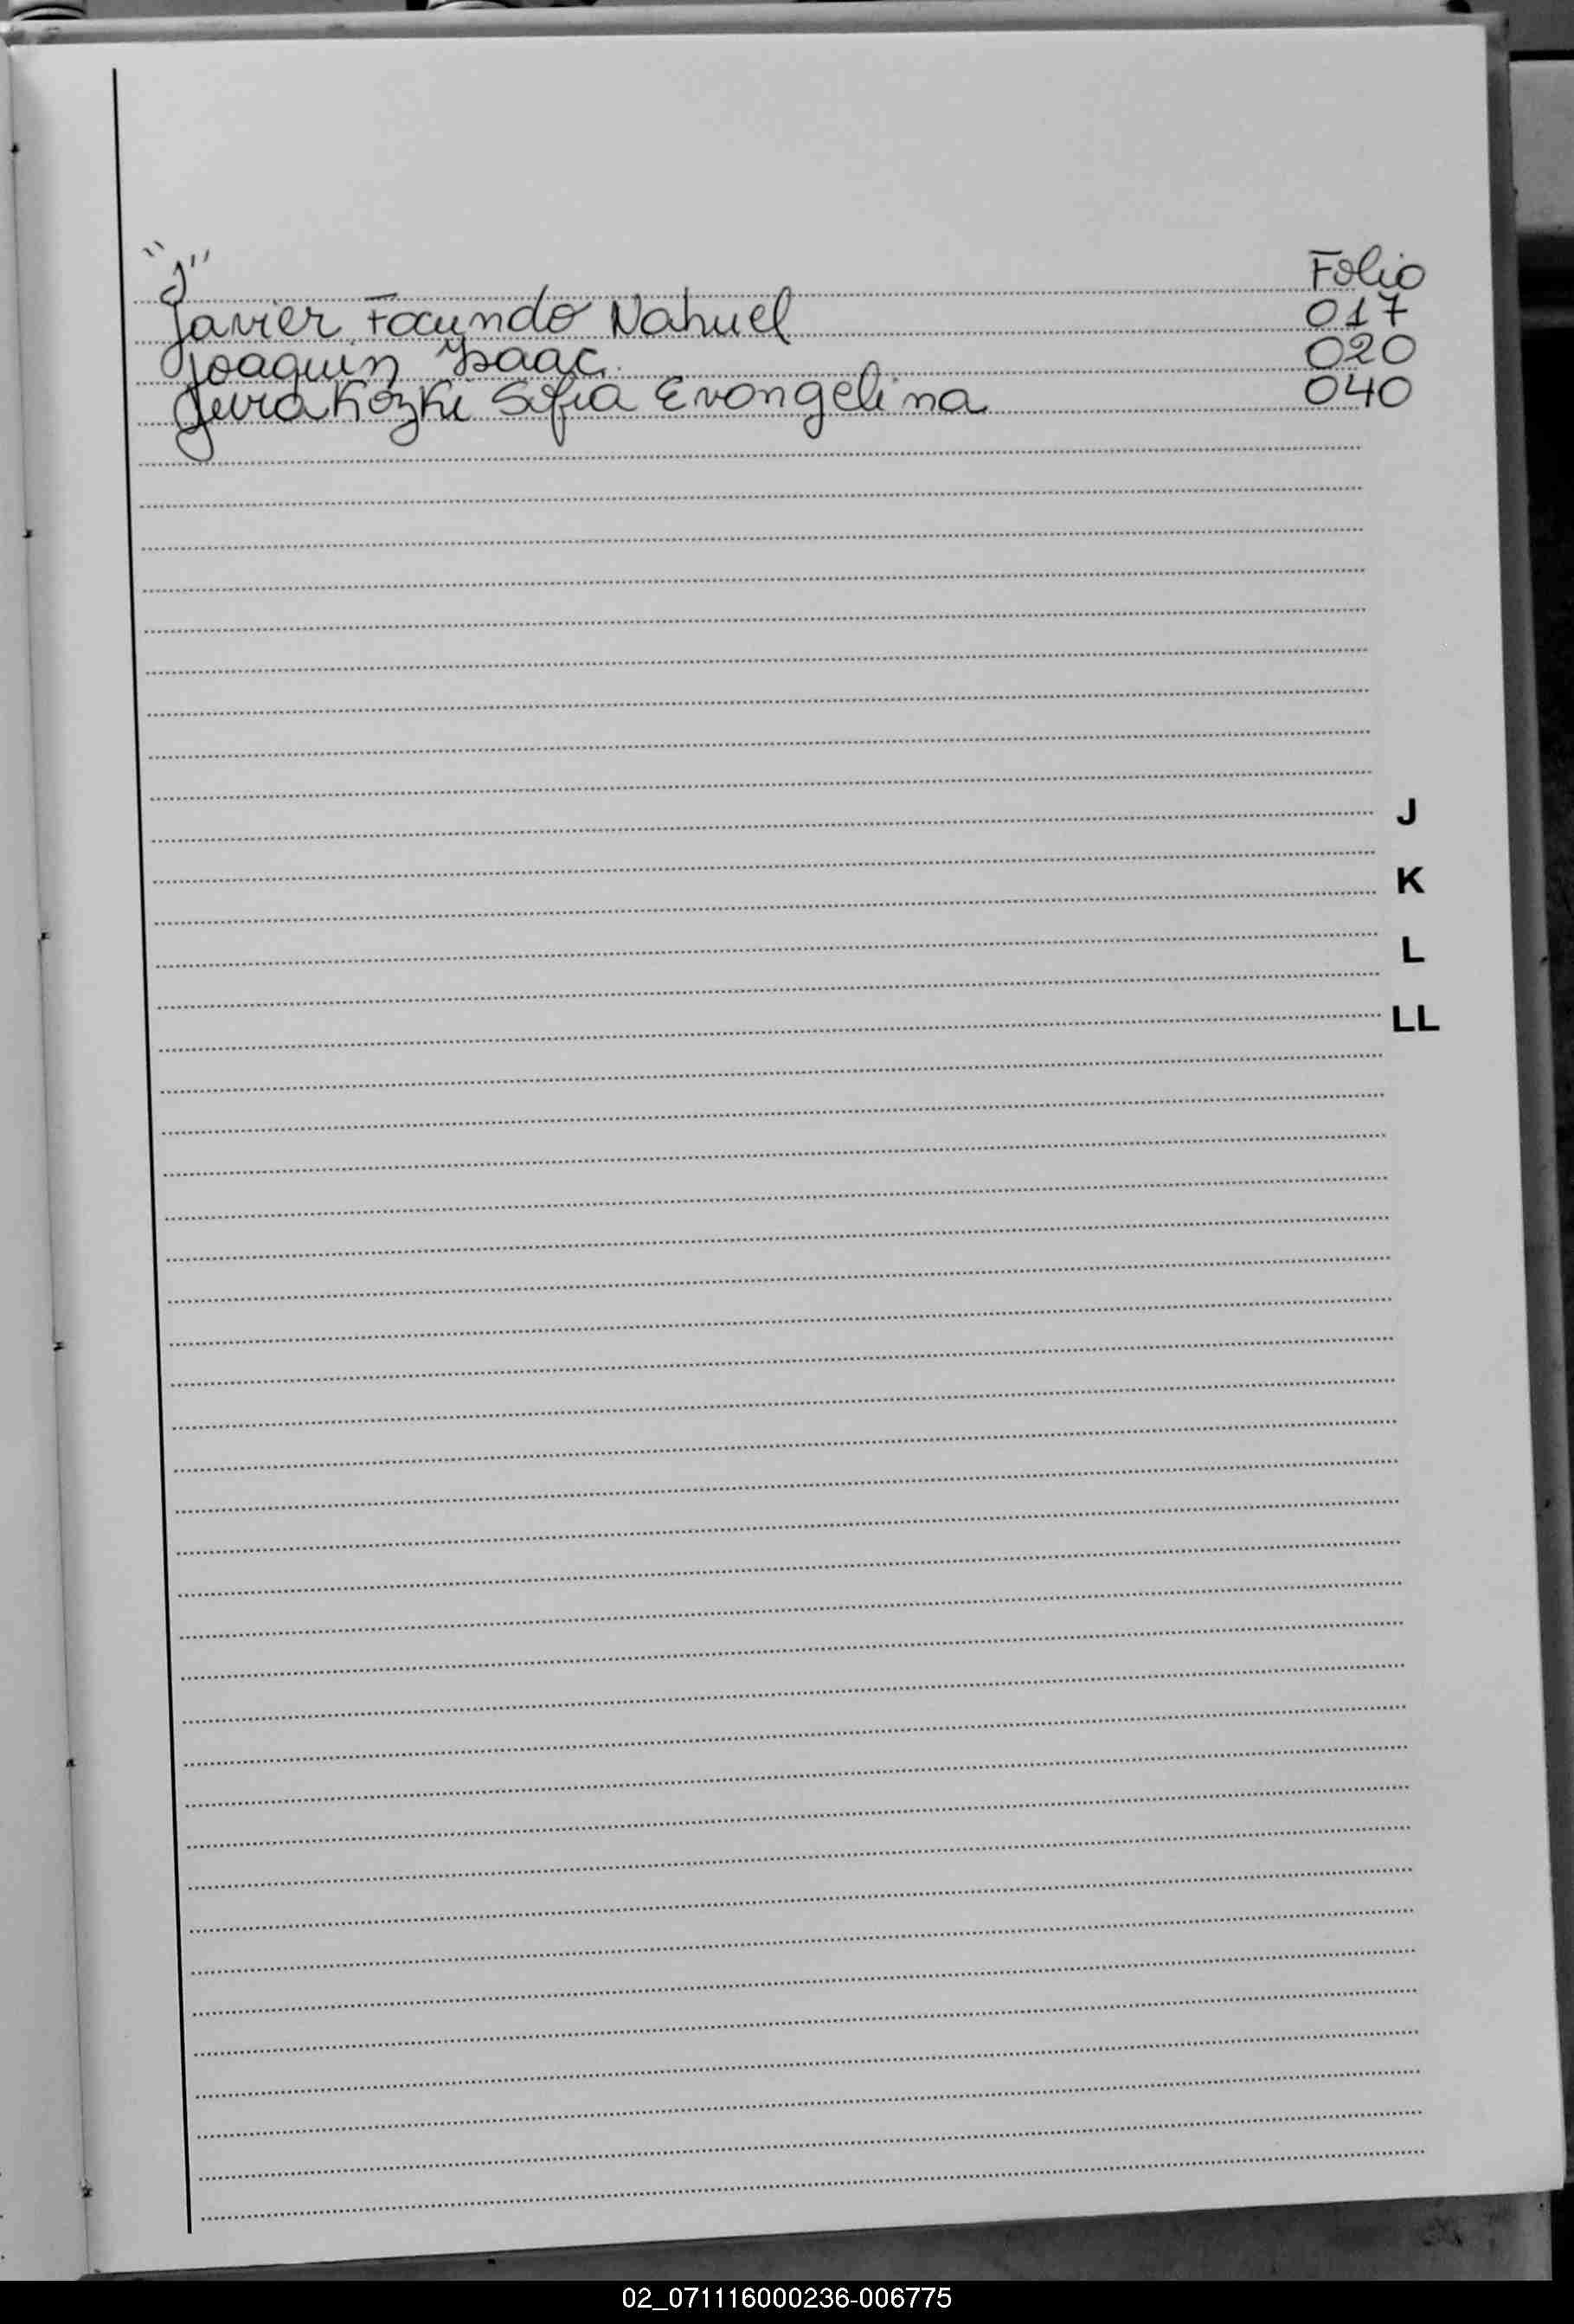 "J" Folio
Javier Facundo Nahuel 017
Joaquin Isaac 020
JuraKozki Sofia Evangelina 040
J
K
L
LL
02_071116000236-006775